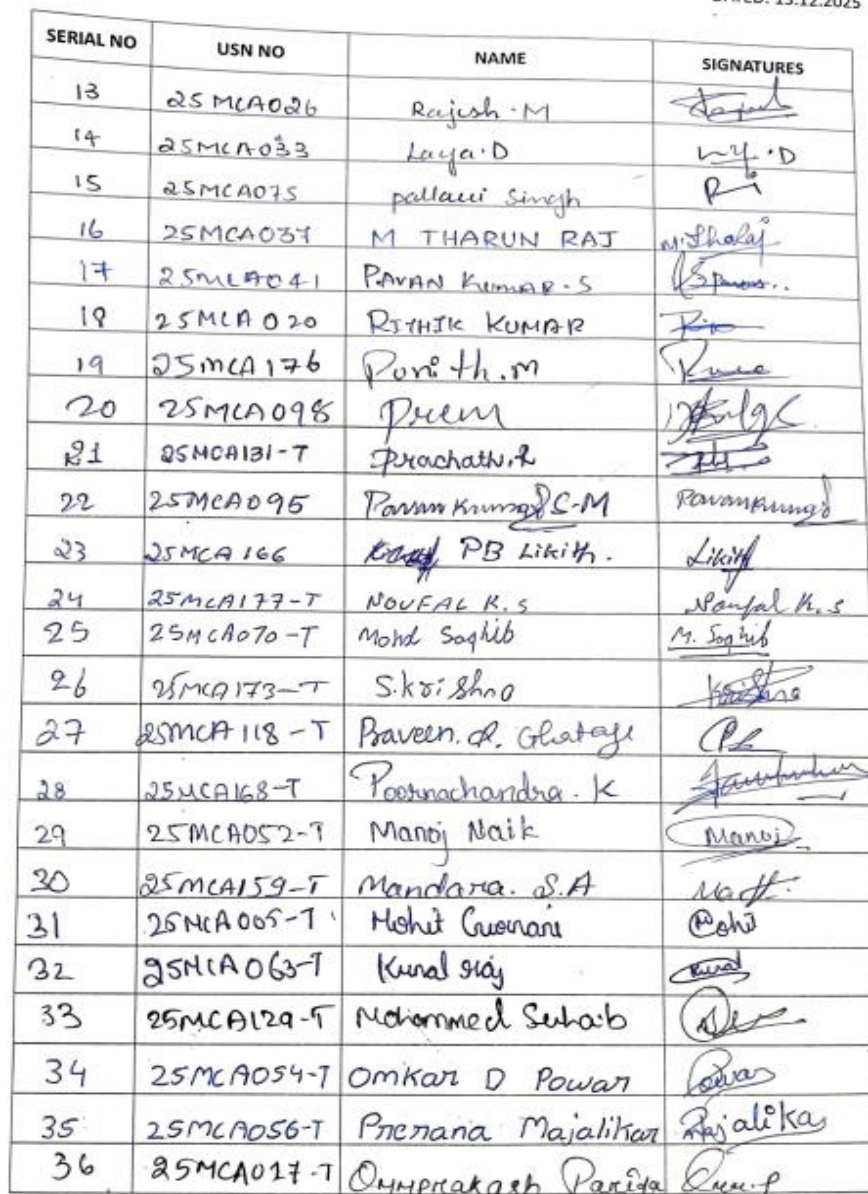 DATED: 13.12.2025
SERIAL NO USN NO NAME SIGNATURES
13 25MCA026 Rajesh.M
14 25MCA033 Laya.D
15 25MCA075 pallavi Singh
16 25MCA037 M THARUN RAJ
17 25MCA041 PAVAN KUMAR.S
18 25MCA020 RITHIK KUMAR
19 25MCA176 Punith.M
20 25MCA098 Prem
21 25MCA131-T
22 25MCA095 Pavan Kumar C-M Pavankumar
23 25MCA166 PB Likith. Likith
24 25MCA177-T NOUFAL K.S Noufal K.S
25 25MCA070-T Mohd Saqhib M. Saqhib
26 25MCA173-T S.krishna
27 25MCA118-T Praveen. R. Ghatage
28 25MCA168-T Poornachandra.K
29 25MCA052-T Manoj Naik Manoj
30 25MCA159-T Mandara. S.A
31 25MCA005-T Mohit Mohit
32 25MCA063-T Kunal raj Kunal
33 25MCA129-T Mohammed Suhaib
34 25MCA054-T Omkar D Powar Powar
35 25MCA056-T Prerana Majalikar Majalikar
36 25MCA017-T Ommprakash Parida